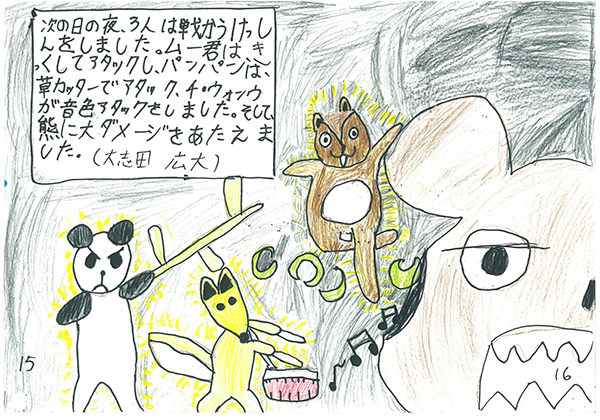 次の日の夜、3人は戦かうけっし
んをしました。ムー君はき
っくしてアタックし、パンパンは、
草カッターでアタック、チ・ウォンウ
が音色アタックをしました。そして、
熊に大ダメージをあたえま
した。(大志田 広大)
15
16